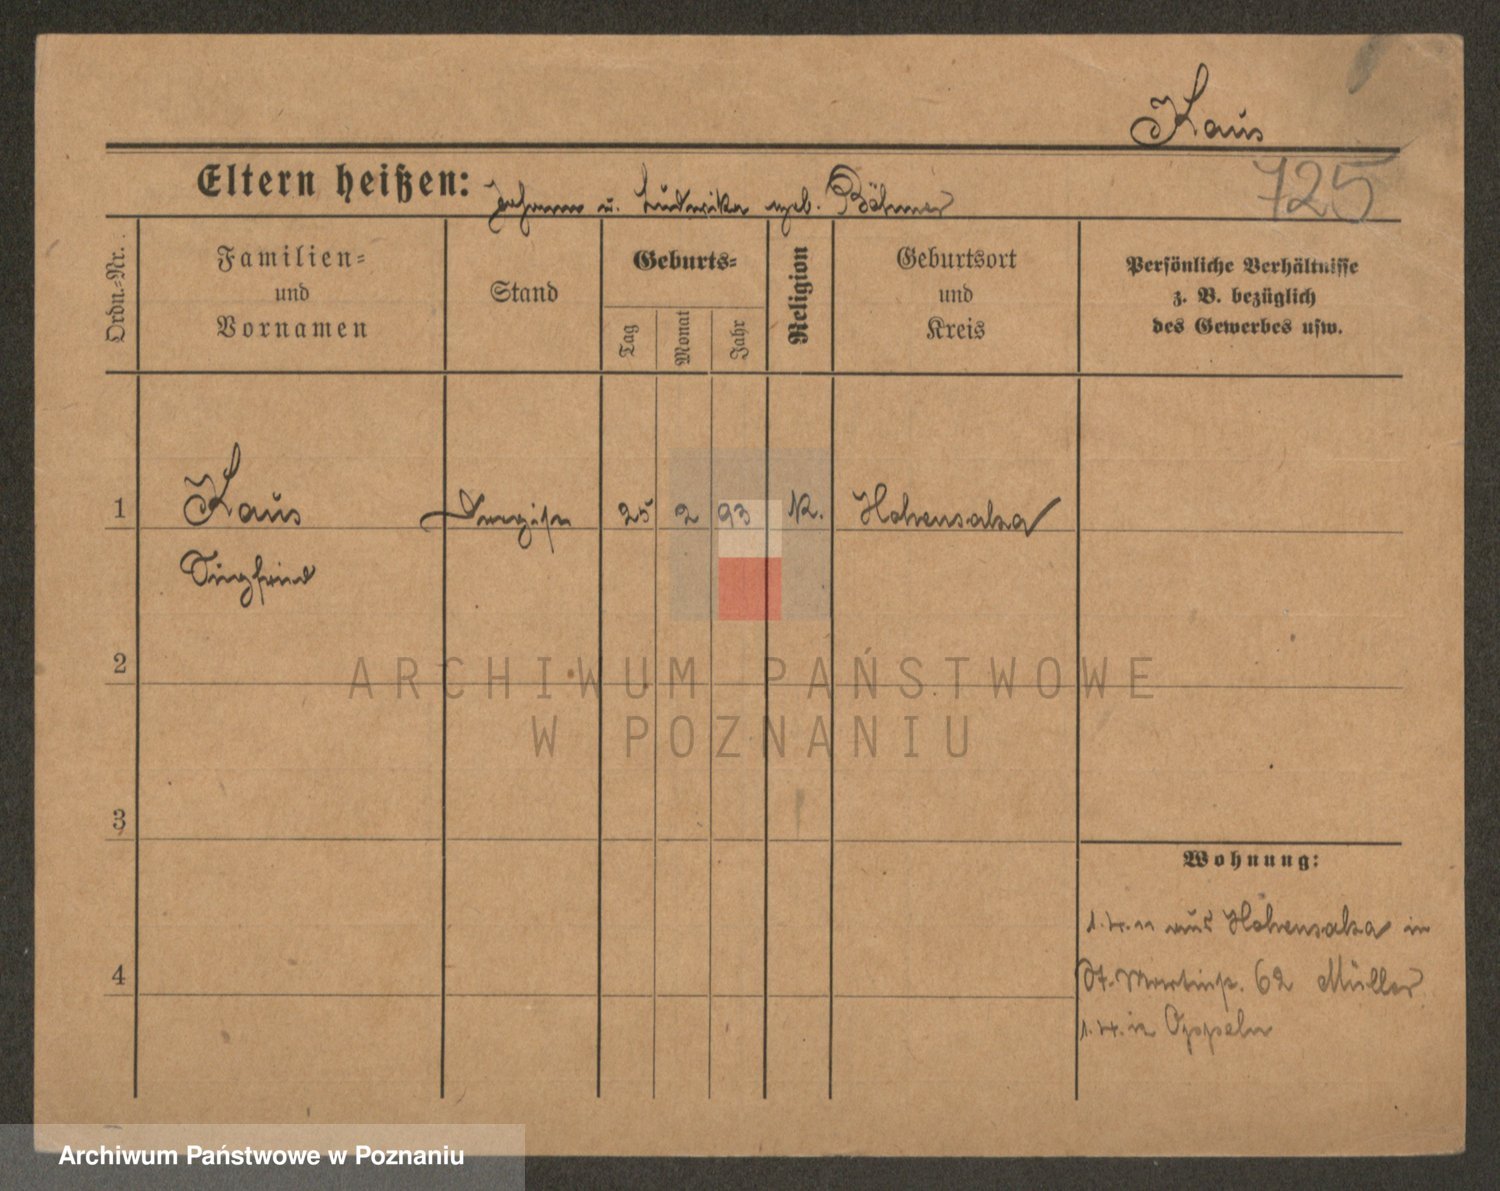 Kaus
Eltern heißen: Johann u. Ludwika geb. Böhmer
725
Ordn.-Nr.
Familien-
und
Vornamen
Stand
Geburts-
Tag
Monat
Jahr
Religion
Geburtsort
und
Kreis
Persönliche Verhältnisse
z. B. bezüglich
des Gewerbes usw.
1 Kaus 25 2 93 K. Hohensalza
Siegfried
2
3
4
Wohnung:
aus Hohensalza in
St. Martinstr. 62 Müller
Oppeln
ARCHIWUM PAŃSTWOWE
W POZNANIU
Archiwum Państwowe w Poznaniu